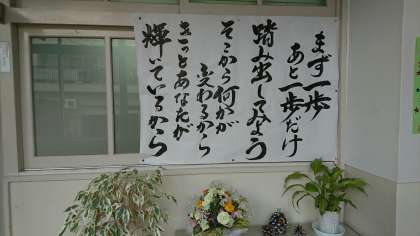 まず一歩
あと一歩だけ
踏み出してみよう
そこから何かが
変わるから
きっとあなたが
輝いているから